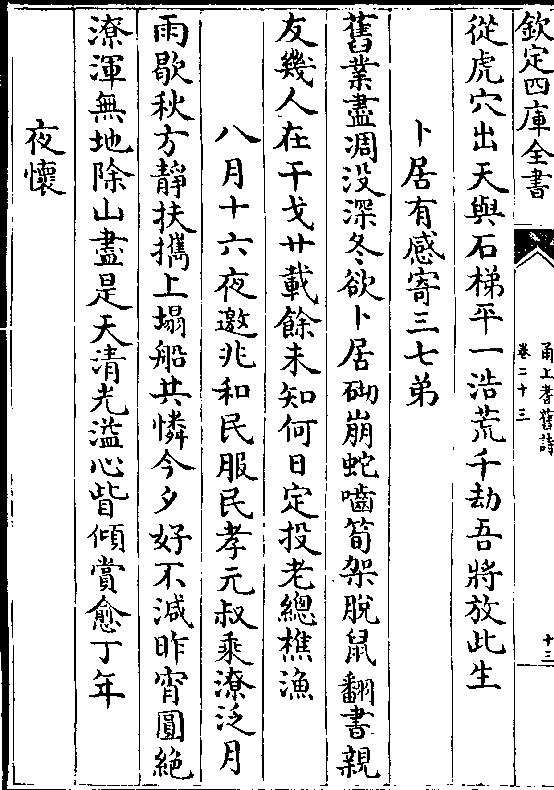 欽定四庫全書
甬上耆舊詩
卷二十三
十三
從虎穴出天與石梯平一浩荒千劫吾將放此生
卜居有感寄三七弟
舊業盡凋没深冬欲卜居砌崩蛇嚙筍架脱鼠翻書親
友幾人在干戈廿載餘未知何日定投老總樵漁
八月十六夜邀兆和民服民孝元叔乘潦泛月
雨歇秋方靜扶攜上塌船共憐今夕好不減昨宵圓絶
潦渾無地除山盡是天清光溢心眥傾賞愈丁年
夜懷